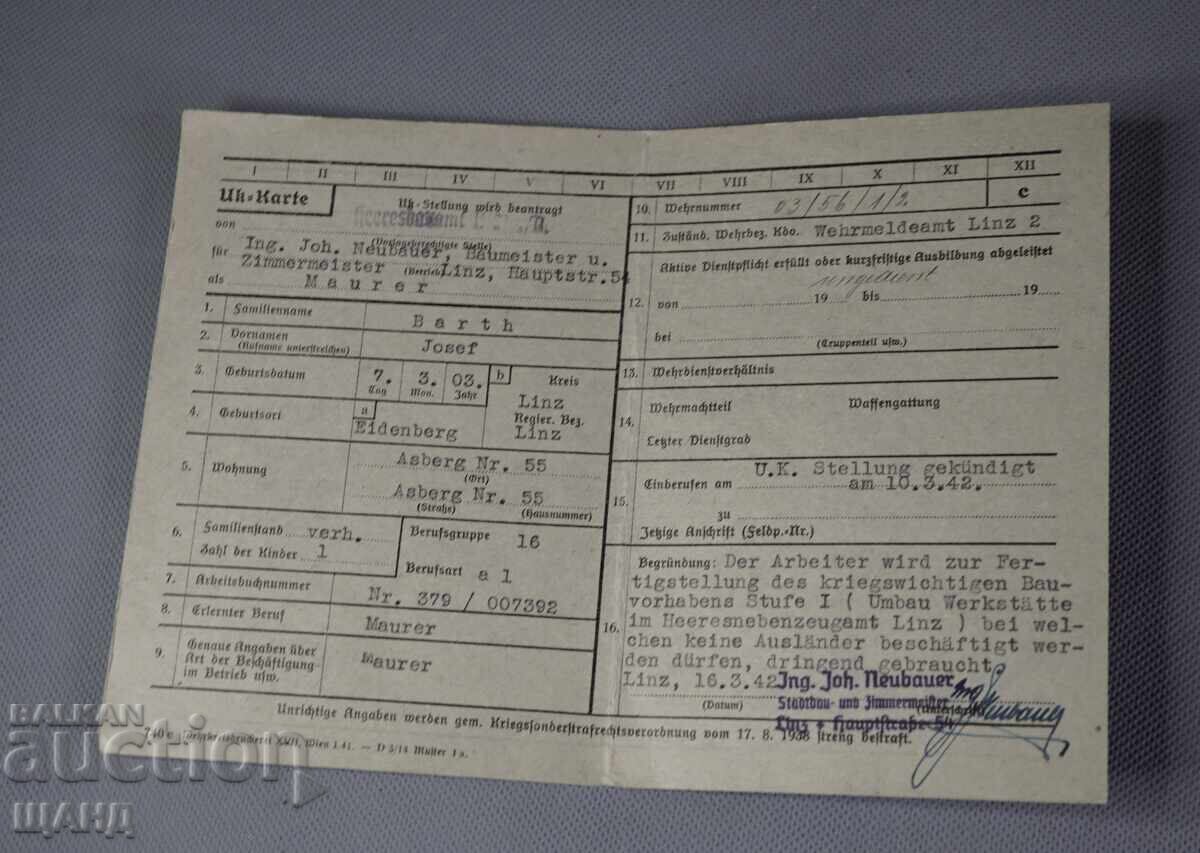 I II III IV V VI VII VIII IX X XI XII
Uk-Karte
Uk-Stellung wird beantragt
von Heeresbauamt
(Vorschlagsberechtigte Stelle)
für Ing. Joh. Neubauer, Baumeister u.
Zimmermeister (Betrieb) Linz, Hauptstr. 54
als Maurer
1. Familienname Barth
2. Vornamen Josef
(Rufname unterstreichen)
3. Geburtsdatum 7. 3. 03.
Tag Mon. Jahr
b Kreis
Linz
Regier. Bez.
Linz
4. Geburtsort a
Eidenberg
5. Wohnung Asberg Nr. 55
(Ort)
Asberg Nr. 55
(Straße) (Hausnummer)
6. Familienstand verh.
Zahl der Kinder 1
Berufsgruppe 16
Berufsart a 1
7. Arbeitsbuchnummer Nr. 379 / 007392
8. Erlernter Beruf Maurer
9. Genaue Angaben über
Art der Beschäftigung
im Betrieb usw.
Maurer
10. Wehrnummer 03/56/1/2
c
11. Zuständ. Wehrbez. Kdo. Wehrmeldeamt Linz 2
Aktive Dienstpflicht erfüllt oder kurzfristige Ausbildung abgeleistet
ungedient
12. von 19 bis 19
bei
(Truppenteil usw.)
13. Wehrdienstverhältnis
14. Wehrmachtteil Waffengattung
Letzter Dienstgrad
15. Einberufen am U.K. Stellung gekündigt
am 10.3.42.
zu
Jetzige Anschrift (Feldp.-Nr.)
16. Begründung: Der Arbeiter wird zur Fer-
tigstellung des kriegswichtigen Bau-
vorhabens Stufe I ( Umbau Werkstätte
im Heeresnebenzeugamt Linz ) bei wel-
chen keine Ausländer beschäftigt wer-
den dürfen, dringend gebraucht.
Linz, 16.3.42
(Datum) (Unterschrift)
Ing. Joh. Neubauer
Stadtbau- und Zimmermeister
Linz + Hauptstraße 54
Ing Neubauer
Unrichtige Angaben werden gem. Kriegssonderstrafrechtsverordnung vom 17. 8. 1938 streng bestraft.
740 c Wehrkreisdruckerei XVII, Wien I 41. — D 3/14 Muster 1 a.
BALKAN
auction
ЩАНД